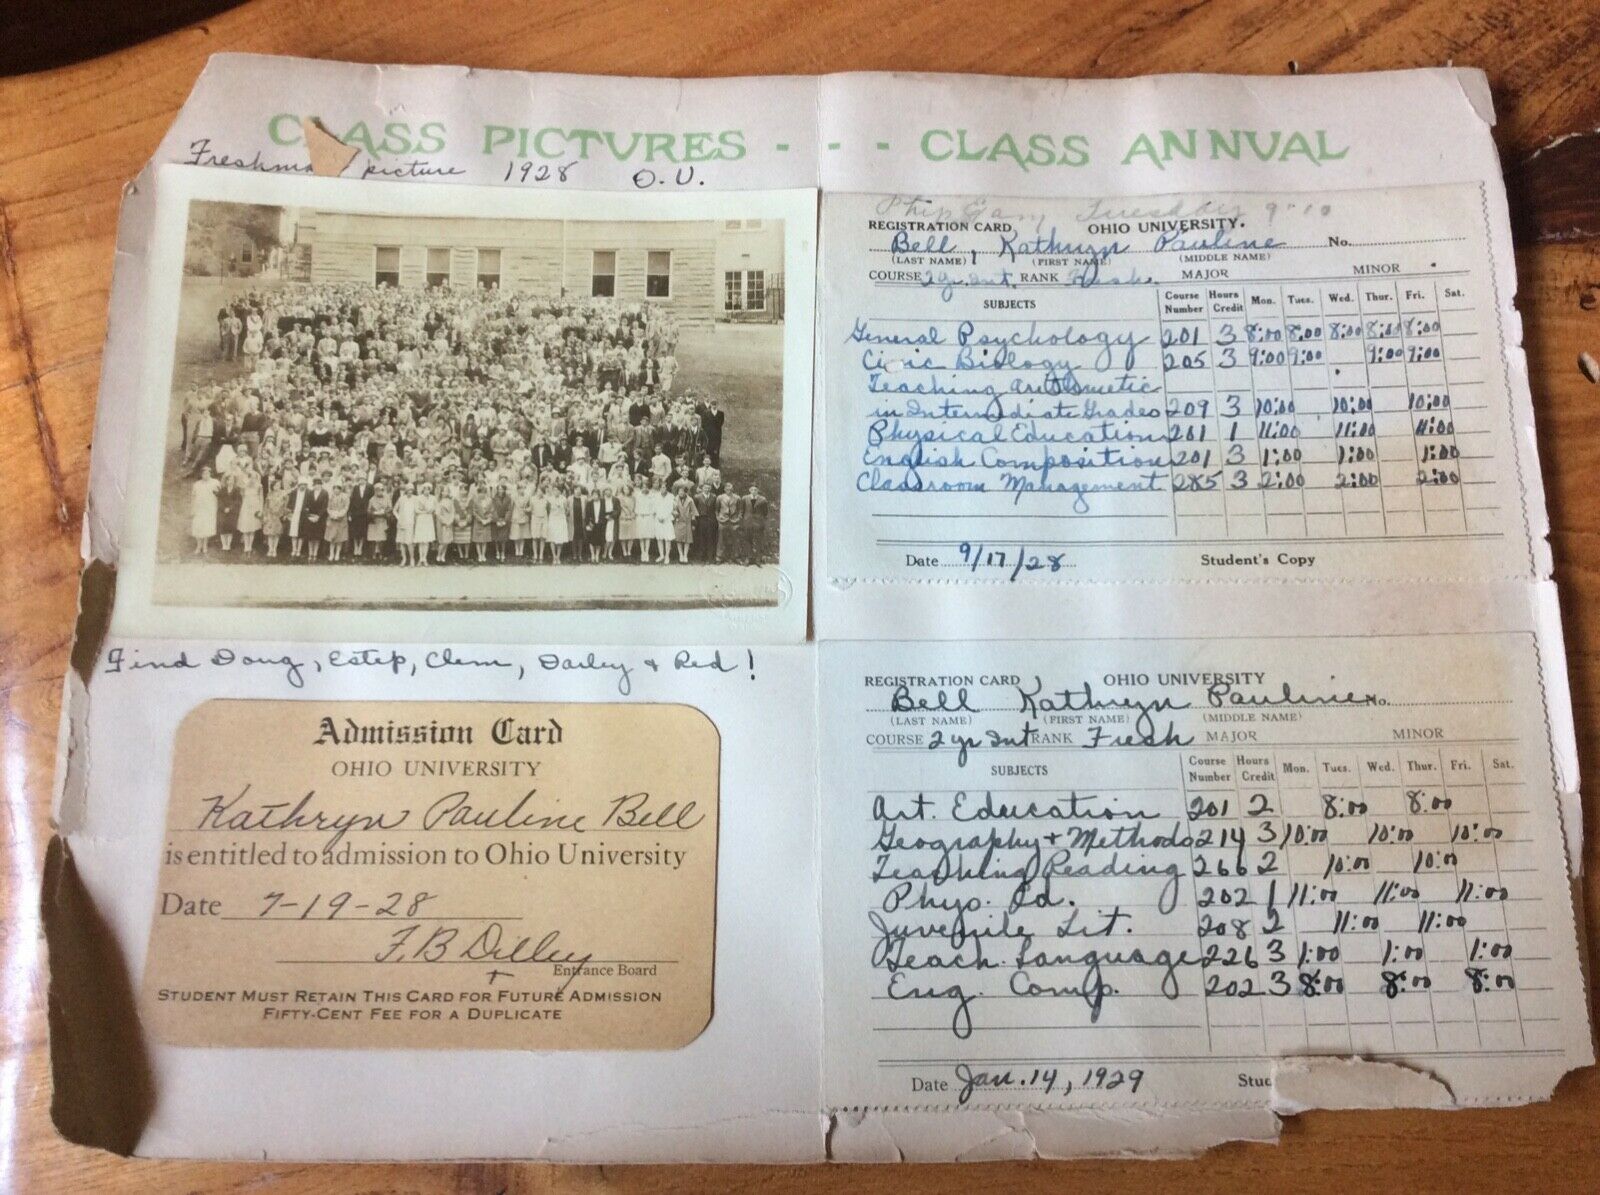 CLASS PICTURES - - - CLASS ANNUAL
Freshma picture 1928 O.U.
Find Doug, Estep, Clem, Dailey + Red!
Admission Card
OHIO UNIVERSITY
Kathryn Pauline Bell
is entitled to admission to Ohio University
Date 7-19-28
F. B Dilley
Entrance Board
STUDENT MUST RETAIN THIS CARD FOR FUTURE ADMISSION
FIFTY-CENT FEE FOR A DUPLICATE
9:10
REGISTRATION CARD, OHIO UNIVERSITY.
Bell, Kathryn Pauline No.
(LAST NAME) (FIRST NAME) (MIDDLE NAME)
COURSE 2 yr. Int. RANK Fresh. MAJOR MINOR
SUBJECTS Course Number Hours Credit Mon. Tues. Wed. Thur. Fri. Sat.
General Psychology 201 3 8:00 8:00 8:00 8:00 8:00
Civic Biology 205 3 9:00 9:00 9:00 9:00
Teaching Arithmetic
in Intermediate Grades 209 3 10:00 10:00 10:00
Physical Education 201 1 11:00 11:00 11:00
English Composition 201 3 1:00 1:00 1:00
Classroom Management 285 3 2:00 2:00 2:00
Date 9/17/28 Student's Copy
REGISTRATION CARD OHIO UNIVERSITY
Bell Kathryn Pauline No.
(LAST NAME) (FIRST NAME) (MIDDLE NAME)
COURSE 2 yr Int RANK Fresh MAJOR MINOR
SUBJECTS Course Number Hours Credit Mon. Tues. Wed. Thur. Fri. Sat.
Art. Education 201 2 8:00 8:00
Geography + Methods 214 3 10:00 10:00 10:00
Teaching Reading 266 2 10:00 10:00
Phys. Ed. 202 1 11:00 11:00 11:00
Juvenile Lit. 208 2 11:00 11:00
Teach. Language 226 3 1:00 1:00 1:00
Eng. Comp. 202 3 8:00 8:00 8:00
Date Jan. 14, 1929 Stud